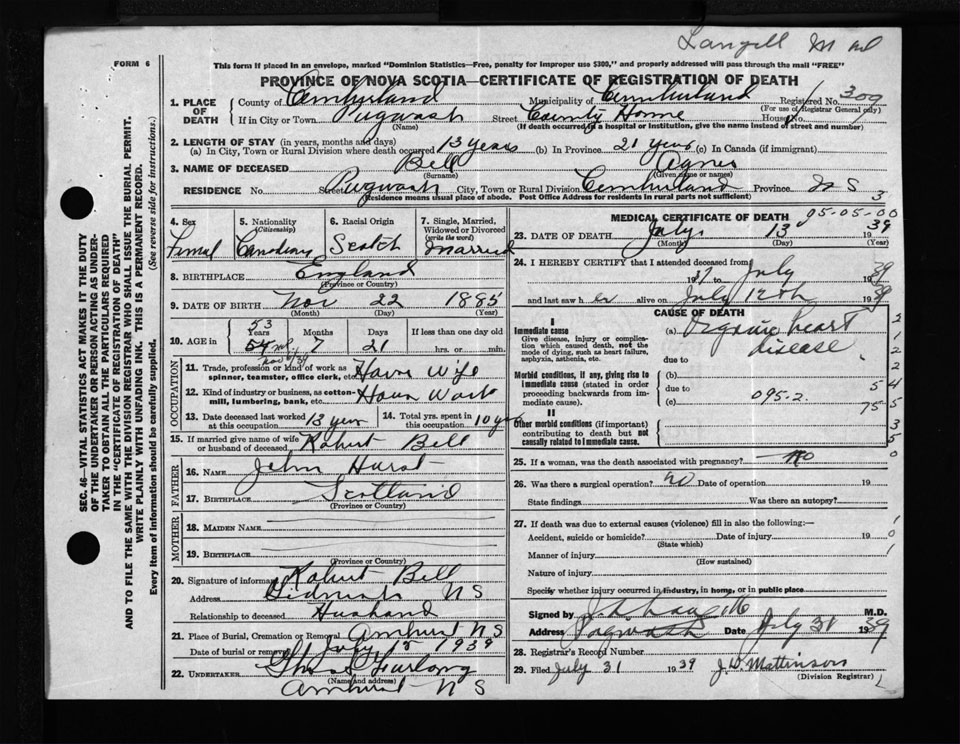 Langill M
FORM 6
This form if placed in an envelope, marked "Dominion Statistics—Free, penalty for improper use $300," and properly addressed will pass through the mail "FREE"
PROVINCE OF NOVA SCOTIA—CERTIFICATE OF REGISTRATION OF DEATH
1. PLACE OF DEATH County of Cumberland Municipality of Cumberland Registered No. 309
(For use of Registrar General only)
If in City or Town Pugwash Street County Home House No.
(Name) (If death occurred in a hospital or institution, give the name instead of street and number)
2. LENGTH OF STAY (in years, months and days)
(a) In City, Town or Rural Division where death occurred 13 years (b) In Province 21 years (c) In Canada (if immigrant)
3. NAME OF DECEASED Bell Agnes
(Surname) (Given name or names)
RESIDENCE No. Street Pugwash City, Town or Rural Division Cumberland Province N S
(Residence means usual place of abode. Post Office Address for residents in rural parts not sufficient) 3
4. Sex Femal
5. Nationality (Citizenship) Canadian
6. Racial Origin Scotch
7. Single, Married, Widowed or Divorced (write the word) Married
8. BIRTHPLACE England
(Province or Country)
9. DATE OF BIRTH Nov 22 1885
(Month) (Day) (Year)
10. AGE in Years Months Days If less than one day old
53
54 7 21 hrs. or min.
OCCUPATION
11. Trade, profession or kind of work as spinner, teamster, office clerk, etc. House Wife
12. Kind of industry or business, as cotton-mill, lumbering, bank, etc. House Work
13. Date deceased last worked at this occupation 13 years
14. Total yrs. spent in this occupation 10 yrs
15. If married give name of wife or husband of deceased Robert Bell
FATHER
16. NAME John Hurst
17. BIRTHPLACE Scotland
(Province or Country)
MOTHER
18. MAIDEN NAME
19. BIRTHPLACE
(Province or Country)
20. Signature of informant Robert Bell
Address N S
Relationship to deceased Husband
21. Place of Burial, Cremation or Removal Amherst N S
Date of burial or removal July 15 1939
22. UNDERTAKER Furlong
(Name and address)
Amherst N S
MEDICAL CERTIFICATE OF DEATH 05-05-00
23. DATE OF DEATH July 13 1939
(Month) (Day) (Year)
24. I HEREBY CERTIFY that I attended deceased from
July 1939
and last saw h er alive on July 12th 1939
CAUSE OF DEATH
I
Immediate cause
Give disease, injury or complication which caused death, not the mode of dying, such as heart failure, asphyxia, asthenia, etc.
(a) Organic heart disease
due to
Morbid conditions, if any, giving rise to immediate cause (stated in order proceeding backwards from immediate cause).
(b)
due to
(c) 095-2.
II
Other morbid conditions (if important) contributing to death but not causally related to immediate cause.
25. If a woman, was the death associated with pregnancy? No
26. Was there a surgical operation? no Date of operation 19
State findings Was there an autopsy?
27. If death was due to external causes (violence) fill in also the following:—
Accident, suicide or homicide? Date of injury 19
(State which)
Manner of injury
(How sustained)
Nature of injury
Specify whether injury occurred in industry, in home, or in public place
Signed by M.D.
Address Pugwash Date July 31 1939
28. Registrar's Record Number
29. Filed July 31 1939 J. D. Mattinson
(Division Registrar)
SEC. 46—VITAL STATISTICS ACT MAKES IT THE DUTY
OF THE UNDERTAKER OR PERSON ACTING AS UNDER-
TAKER TO OBTAIN ALL THE PARTICULARS REQUIRED
IN THE "CERTIFICATE OF REGISTRATION OF DEATH"
AND TO FILE THE SAME WITH THE DIVISION REGISTRAR WHO SHALL ISSUE THE BURIAL PERMIT.
WRITE PLAINLY WITH UNFADING INK. THIS IS A PERMANENT RECORD.
Every item of information should be carefully supplied. (See reverse side for instructions.)